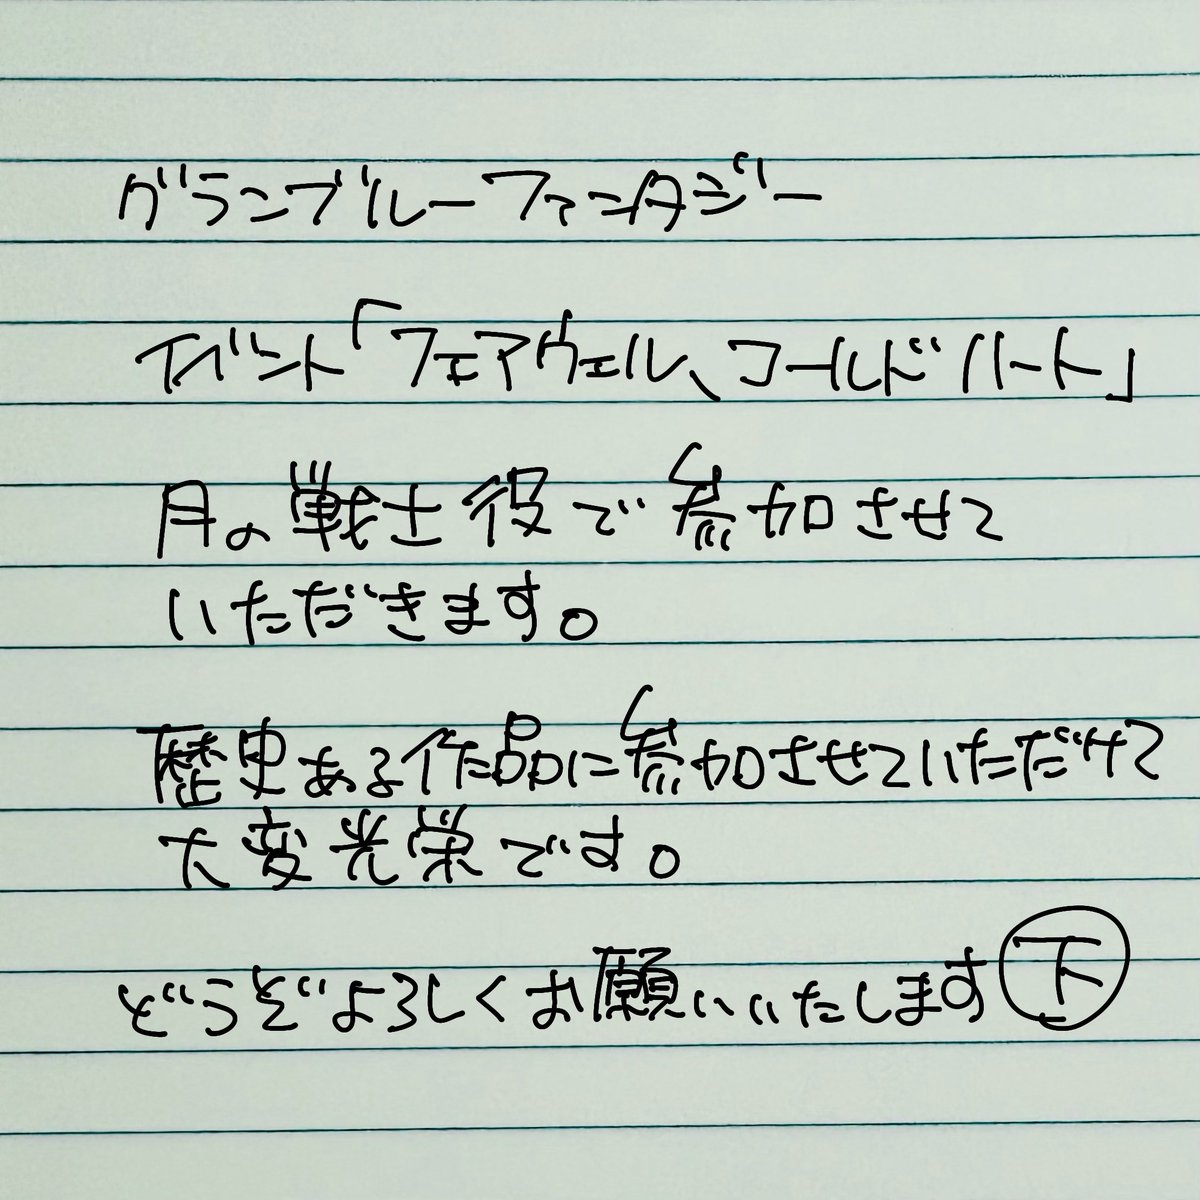 グランブルーファンタジー
イベント「フェアウェル、コールドハート」
月の戦士役で参加させて
いただきます。
歴史ある作品に参加させていただけて
大変光栄です。
どうぞよろしくお願いいたします㊦